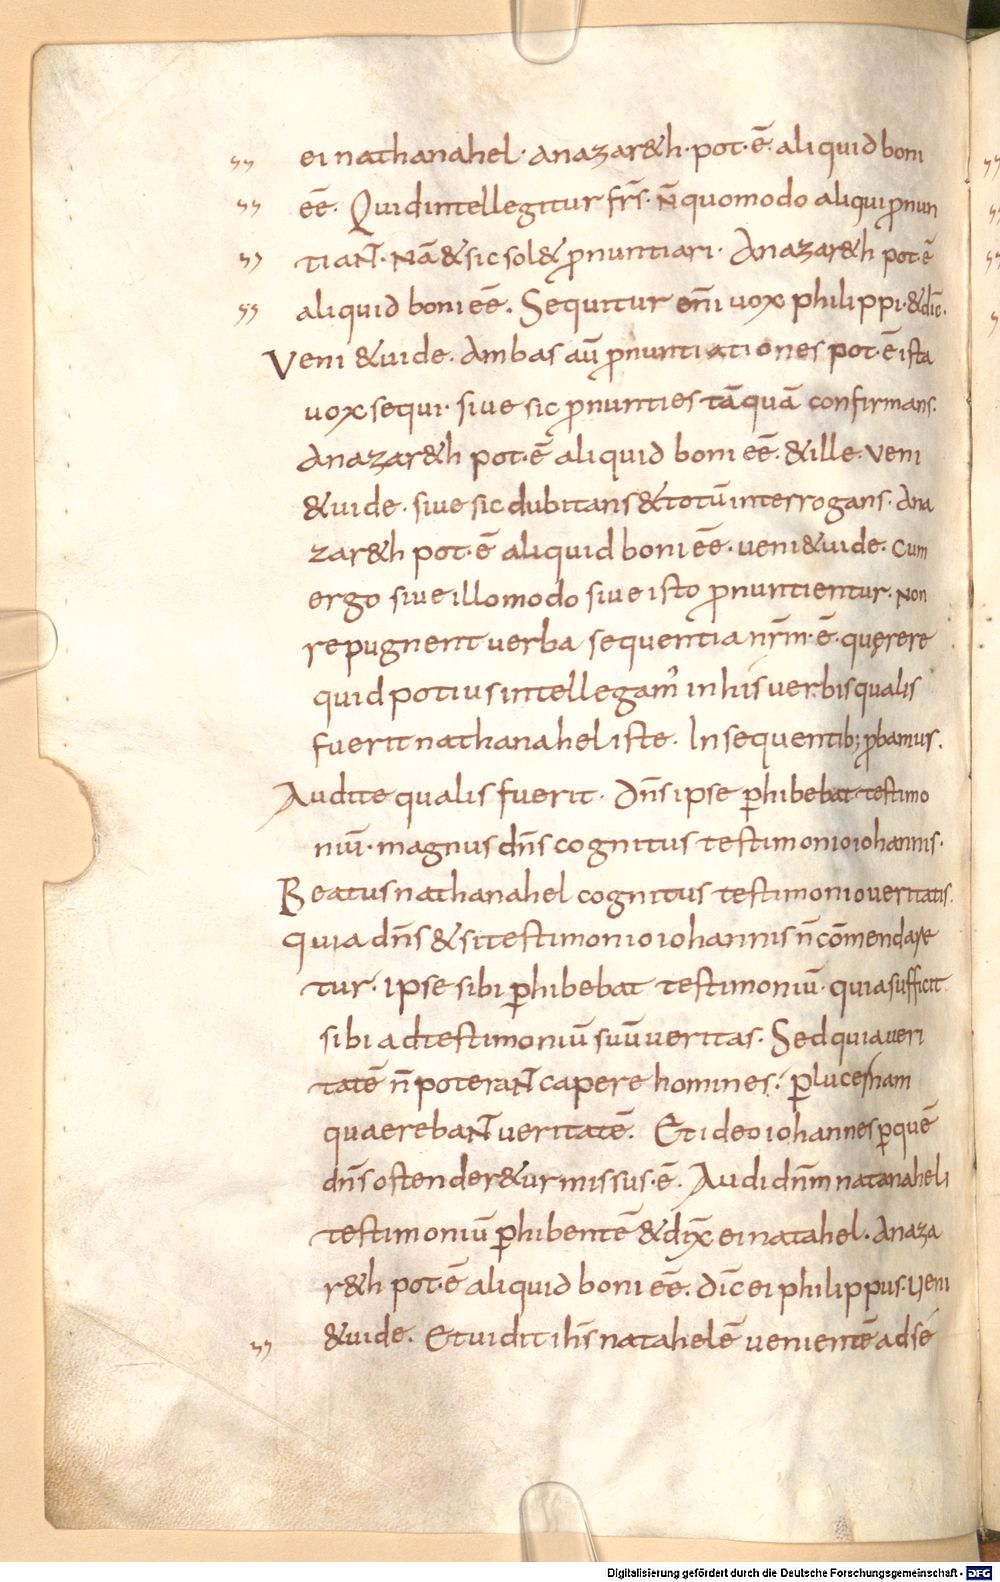 ei nathanahel· anazar&h· pot·ē· aliquid boni
eē· Quid intellegitur frs̄· n̄ quomodo aliqui p̄nun
tiaNT· Nā & sic sol& p̄nuntiari· Anazar&h pot·ē
aliquid boni eē. Sequitur eni̅ uox philippi· & dic̄·
Veni & uide. Ambas au̅ p̄nuntiationes pot·ē ista
uox sequi· siue sic p̄nunties tāquā confirmans.
Anazar&h pot·ē aliquid boni eē. & ille. Veni
& uide. siue sic dubitans & totū interrogans. Ana
zar&h pot·ē aliquid boni eē. ueni & uide. Cum
ergo siue illo modo siue isto p̄nuntientur. Non
repugnent uerba sequentia nr̄m·ē· quęrere
quid potius intellegam᾽ in his uerbis qualis
fuerit nathanahel iste. In sequentib; p̱bamus.
Audite qualis fuerit. Dn̄s ipse p̱hibebat testimo
niū· magnus dn̄s cognitus testimonio iohannis.
Beatus nathanahel cognitus testimonio ueritatis.
quia dn̄s & si testimonio iohannis n̄ cōmendare
tur. ipse sibi p̱hibebat testimoniū· quia sufficit
sibi ad testimoniū suū ueritas. Sed quia ueri
tatē n̄ poteraNT capere homines. p̱ lucernam
quaerebaNT ueritatē. Et ideo iohannes p̱ quē
dn̄s ostender&ur missus·ē. Audi dn̄m natanaheli
testimoniū p̱hibentē & dix̄ ei natahel. Anaza
r&h pot·ē aliquid boni eē. Dic̄ ei philippus· Ueni
& uide. Et uidit ih̄s natahelē uenientē ad sē
Digitalisierung gefördert durch die Deutsche Forschungsgemeinschaft - DFG